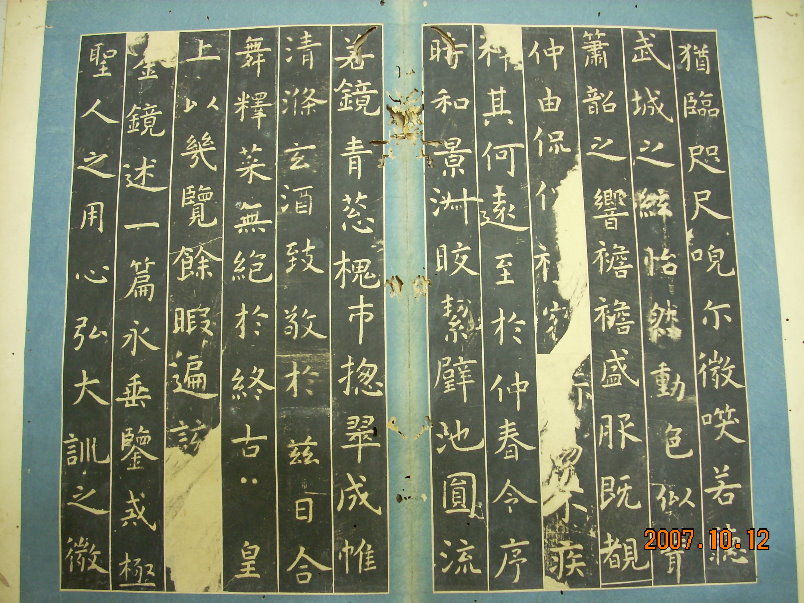 猶臨咫尺唲尓微唉若聼
武城之絃怡然動色似育
簫韶之響襜襜盛服既覩
仲由侃
其何遠至於仲春令序
時和景淋晈絜璧池圓流
若鏡青葱槐市揔翠成帷
清滌玄酒致敬於兹日合
舞釋菜無絕於終古〻皇
上以幾覽餘暇遍該
金鏡述一篇永垂鑒戒極
聖人之用心弘大訓之微
2007.10.12